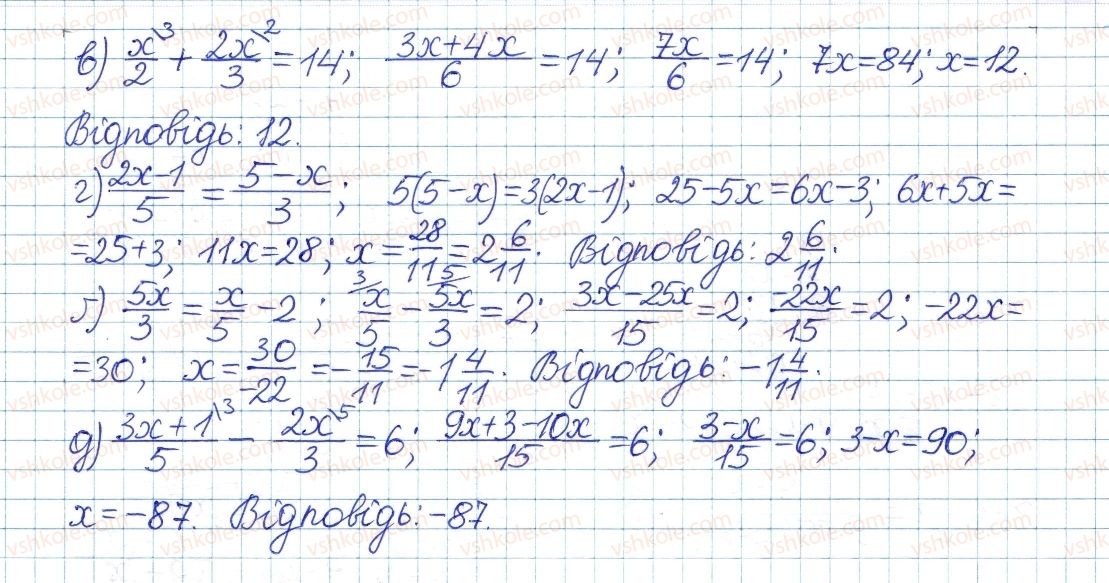 в) x\3/2 + 2x\2/3 = 14; (3x+4x)/6 = 14; 7x/6 = 14; 7x=84; x=12.
Відповідь: 12.
г) (2x-1)/5 = (5-x)/3; 5(5-x)=3(2x-1); 25-5x=6x-3; 6x+5x=
=25+3; 11x=28; x=28/11=2 6/11. Відповідь: 2 6/11.
ґ) 5x/3 = x/5 - 2; 3/x/5 - 5/5x/3 = 2; (3x-25x)/15 = 2; -22x/15 = 2; -22x=
=30; x=30/-22 = -15/11 = -1 4/11. Відповідь: -1 4/11.
д) (3x+1)\3/5 - 2x\5/3 = 6; (9x+3-10x)/15 = 6; (3-x)/15 = 6; 3-x=90;
x=-87. Відповідь: -87.
vshkole.com